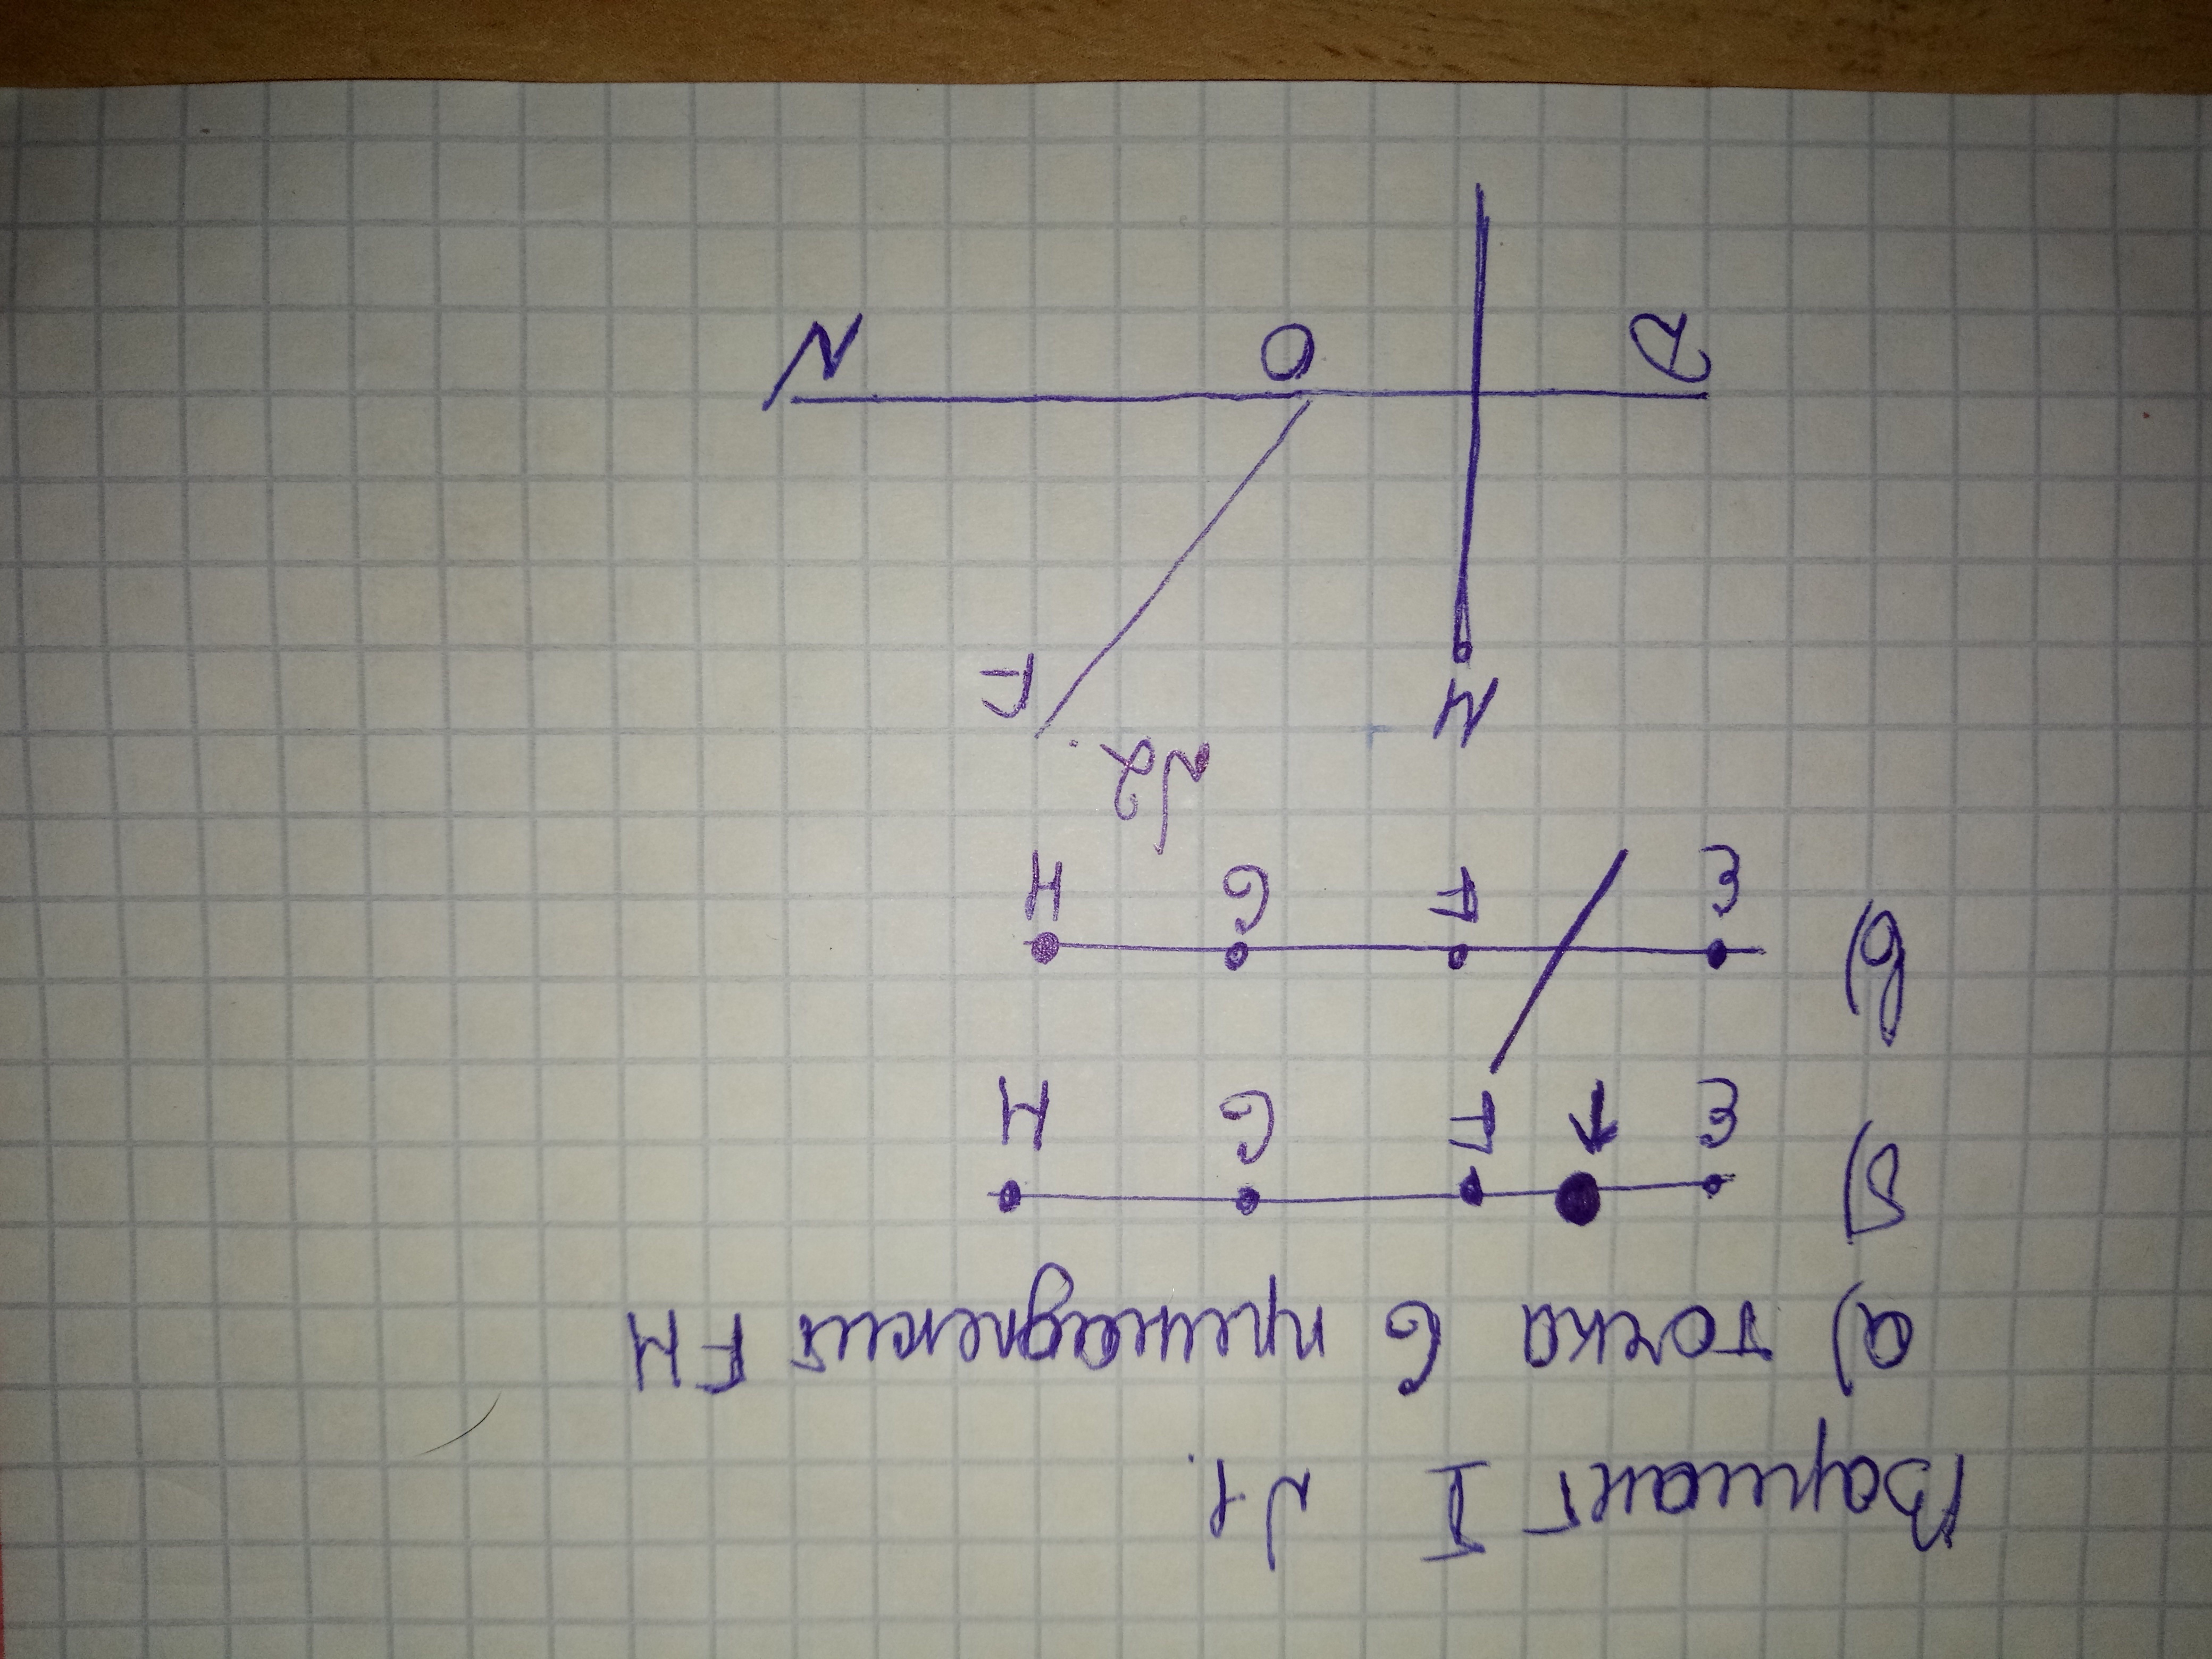 Вариант I №1.
а) точка G принадлежит FH
б) E F G H
в) E F G H
№2.
F
O N